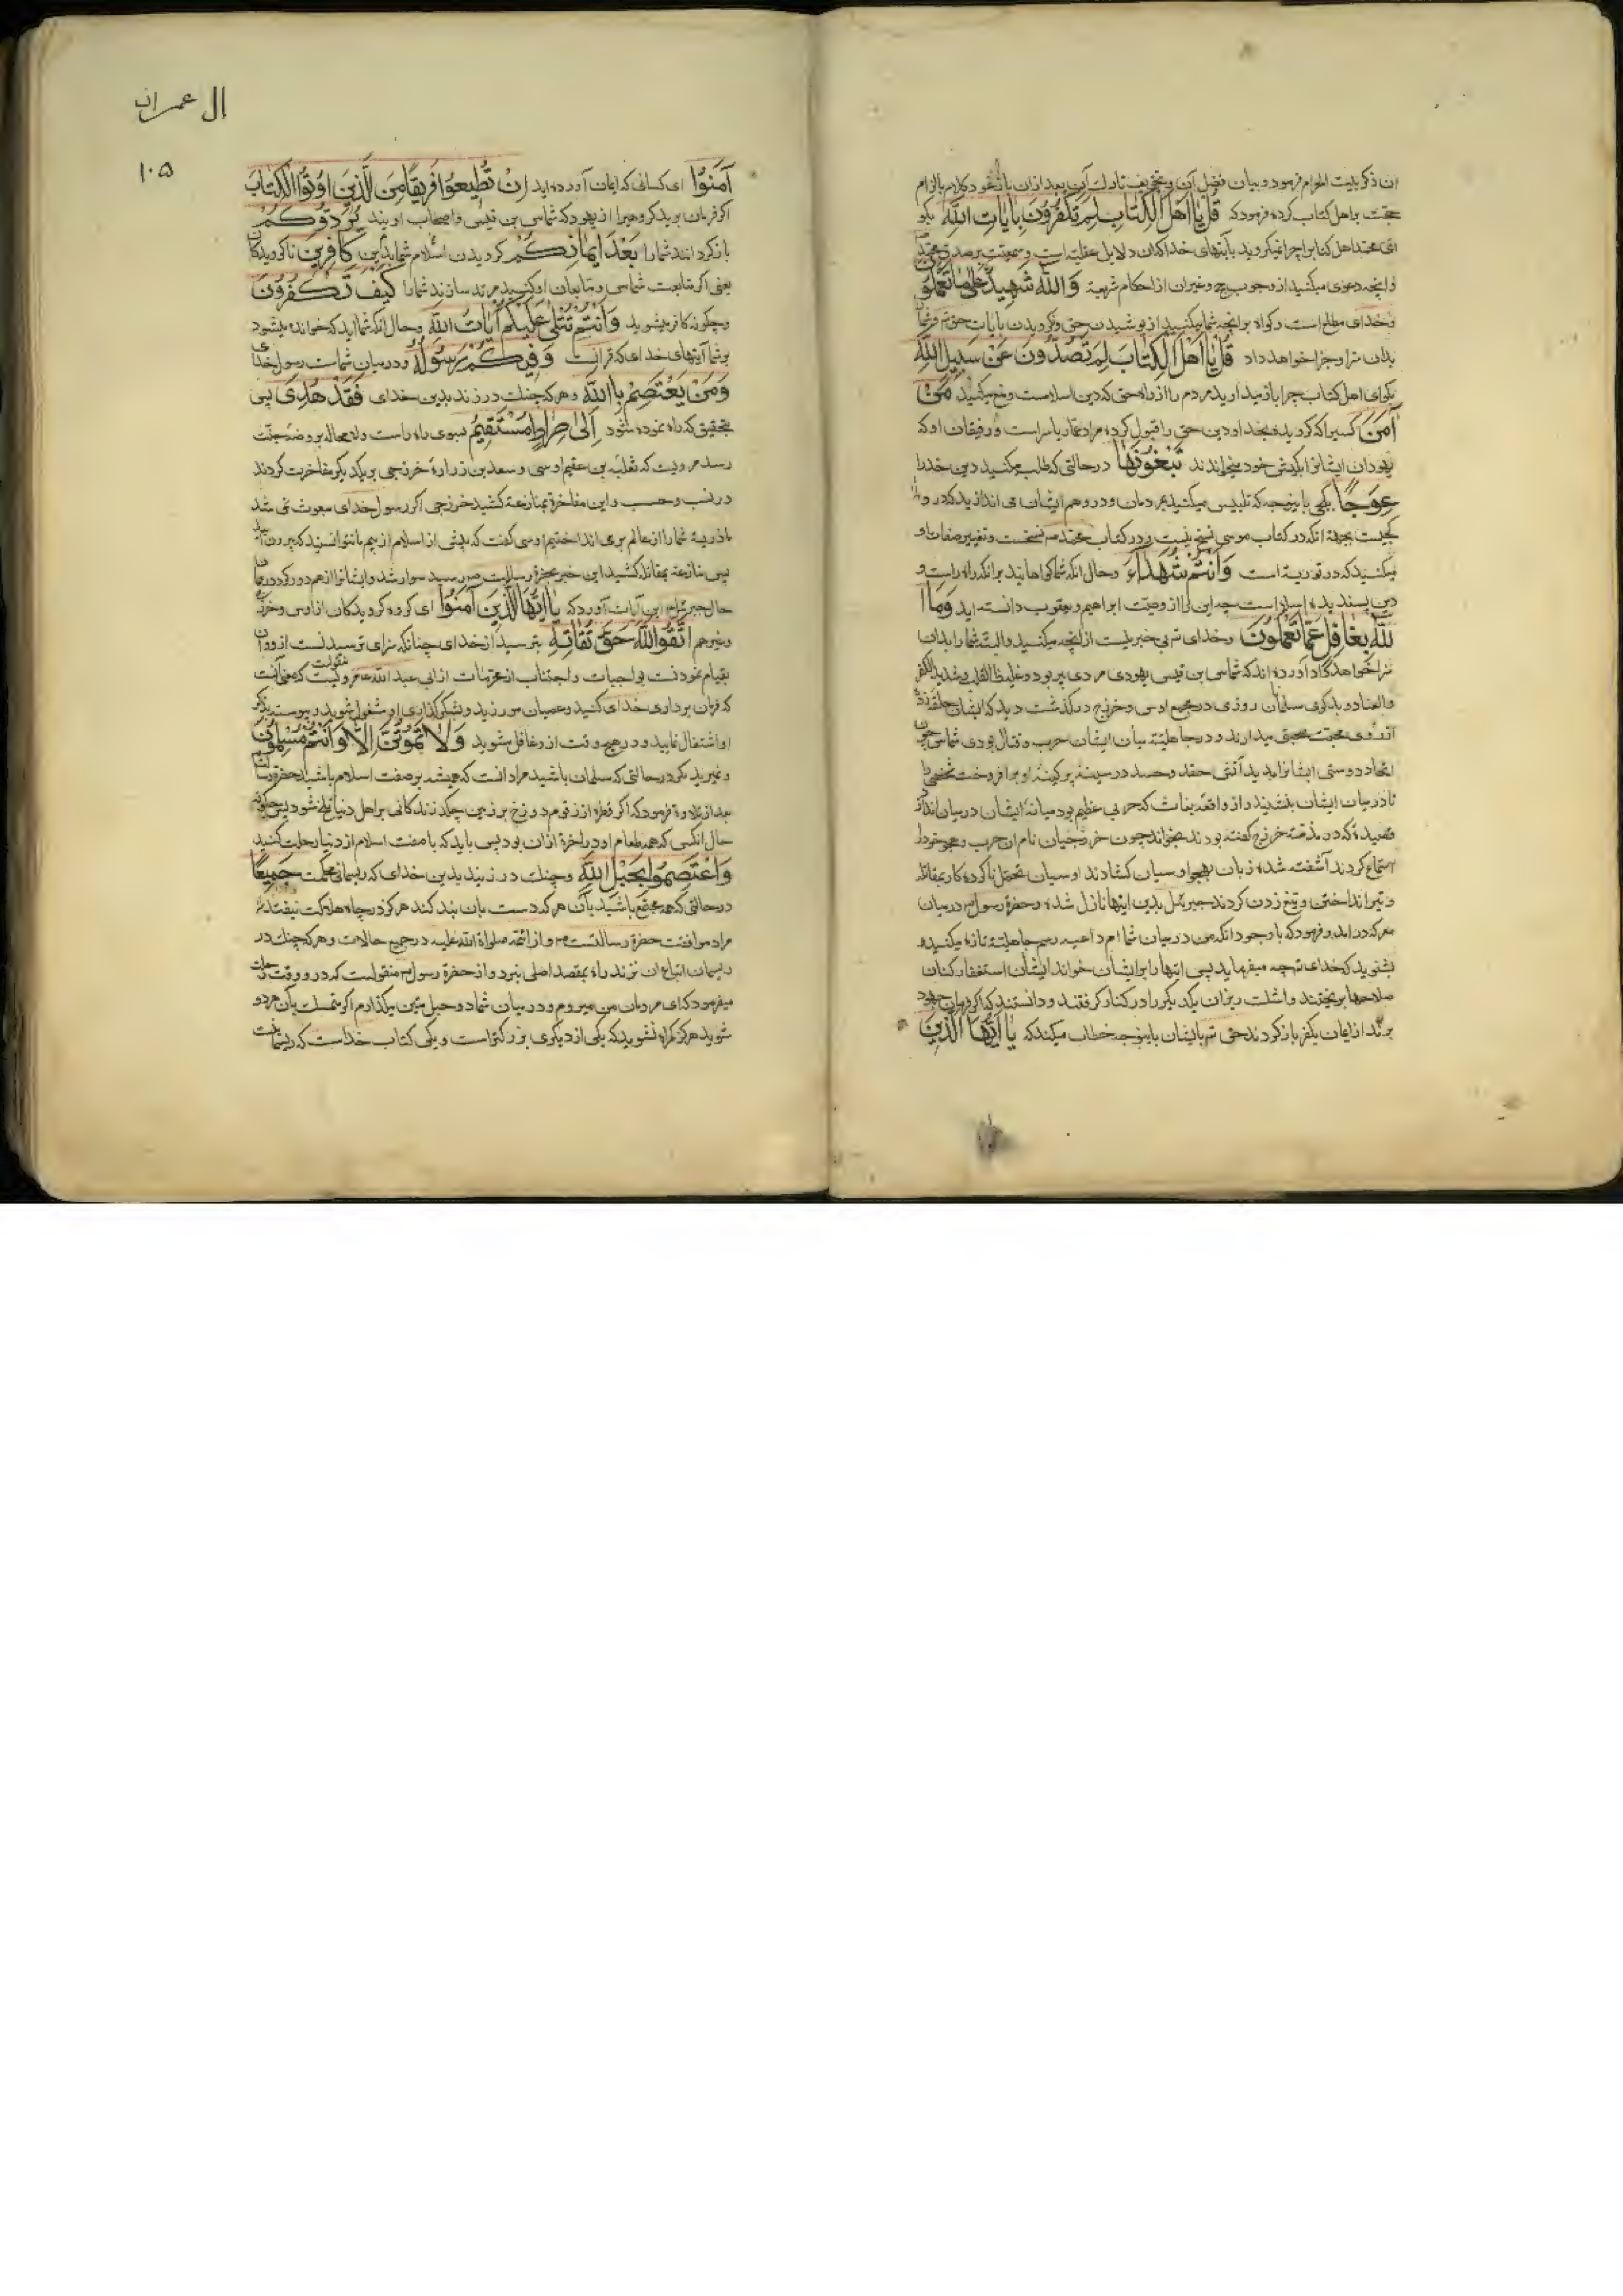 ان ذکر بیت الحرام فرمود و بیان فضل آن و تخویف تارک آن بعد ازان باز نمود کلام بالزام
حجت بر اهل کتاب کرده فرمود که قُلْ یَا اَهْلَ الْکِتَابِ لِمَ تَکْفُرُونَ بِاٰیَاتِ اللّٰهِ بکو
ای محمد اهل کتابرا چرا نمیکروید بآیتهای خدا که آن دلایل عقلیه است و سمعیت بر صدق محمد
و انچه دعوی میکنید از وجوب حج و غیر ان از احکام شرعیه وَاللّٰهُ شَهِیدٌ عَلیٰ مَا تَعْمَلُونَ
و خدای مطلع است و کواه بر انچه شما میکنید از پوشیدن حق و نکرویدن بآیات حق
بدان سزا و جزا خواهد داد قُلْ یَا اَهْلَ الْکِتَابَ لِمَ تَصُدُّونَ عَنْ سَبِیلِ اللّٰهِ
بکو ای اهل کتاب چرا باز میدارید مردم را از راه حق که دین اسلامست و منع میکنید مَنْ
آمَنَ کسیرا که کرویده بخدا و دین حق را قبول کرده مراد عمار یاسر است و رفیقان او که
یهودان ایشانرا بکیش خود میخواندند تَبْغُونَهَا در حالتی که طلب میکنید دین خدا را
عِوَجًا کجی باینوجه که تلبیس میکنید بر مردمان و در وهم ایشان می اندازید که در راه
کجیست بجهة انکه در کتاب موسی نسخ نیست و در کتاب محمد نسخست و تغییر صفات او
میکنید که در توریة است وَاَنْتُمْ شُهَدَاءُ و حال انکه شما کواهانید بر انکه راه راست و
دین پسندیده اسلام است چه این را از وصیت ابراهیم و یعقوب دانسته اید وَمَا ا
للّٰهُ بِغَافِلٍ عَمَّا تَعْمَلُونَ و خدای بی خبر نیست از انچه میکنید و البته شما را بدان
سزا خواهد داد آورده اند که شماس بن قیس یهودی مردی پیر بود و غلیظ القلب و شدید الکفر
والعناد و بدکوی مسلمانان روزی در مجمع اوس و خزرج در کذشت دید که ایشان حلقه زده
از روی محبت صحبتی میدارند و در جاهلیت میان ایشان حرب و قتال بودی شماس چون
اتحاد و دوستی ایشانرا بدید آتش حقد و حسد در سینه پر کینه او برافروخت شخصی را
تا در میان ایشان بنشیند و از واقعه بغاث که حربی عظیم بود میانه ایشان در میان اندازد
قصیده که در مذمت خزرج کفته بودند بخواند چون خزرجیان نام ان حرب و هجو خود را
استماع کردند آشفته شده زبان بهجو اوسیان کشادند اوسیان تحمل ناکرده کار بمقاتله
و تیر انداختن و تیغ زدن کردند جبرئیل بدین ایتها نازل شد و حضرة رسول در میان
معرکه در آمد و فرمود که با وجود انکه من در میان شما ام داعیه رسم جاهلیت تازه میکنید
بشنوید که خدای چه میفرماید پس ایتها را بر ایشان خواند ایشان استغفار کنان
سلاحها بریختند و اشک ریزان یکدیکر را در کنار کرفتند و دانستند که اکر فرمان جهود
برند از ایمان بکفر باز کردند حق بایشان باینوجه خطاب میکند که یَا اَیُّهَا الَّذِینَ
ال عمران
۱۰۵
آمَنُوا ای کسانی که ایمان آورده اید اِنْ تُطِیعُوا فَرِیقًا مِنَ الَّذِینَ اُوتُوا الْکِتَابَ
اکر فرمان برید کروهی را از یهود که شماس بن قیس و اصحاب اویند یَرُدُّوکُمْ
باز کردانند شما را بَعْدَ اِیمَانِکُمْ کرویدن اسلام شما بدین کَافِرِینَ ناکرویدکان
یعنی اکر متابعت شماس و متابعان او کنید مرتد سازند شما را کَیْفَ تَکْفُرُونَ
و چکونه کافر میشوید وَاَنْتُمْ تُتْلیٰ عَلَیْکُمْ آیَاتُ اللّٰهِ و حال انکه شمائید که خوانده میشود
بر شما آیتهای خدای که قرانست وَفِیکُمْ رَسُولُهُ و در میان شماست رسول خدای
وَمَنْ یَعْتَصِمْ بِااللّٰهِ و هر که چنک در زند بدین خدای فَقَدْ هُدِیَ پس
بتحقیق که راه نموده شود اِلیٰ صِرَاطٍ مُسْتَقِیمٍ بسوی راه راست و لا محاله بروضه جنت
رسد مرویست که ثعلبه بن غنم اوسی و سعد بن زراره خزرجی بر یکدیکر مفاخرت کردند
در نسب و حسب و این مفاخرة بمنازعة کشید خزرجی اکر رسول خدای مبعوث نمی شد
ما ذریه شما را از عالم بر می انداختیم اوسی کفت که پیش از اسلام از بیم ما نتوانستید که بیرون آیید
پس منازعه بمقاتله کشید این خبر بحضرة رسالت رسید سوار شد و ایشانرا از هم دور کرد در همان
حال جبرئیل این آیات آورد که یَا اَیُّهَا الَّذِینَ آمَنُوا ای کروه کرویدکان از اوس و خزرج
و غیرهم اتَّقُوا اللّٰهَ حَقَّ تُقَاتِهِ بترسید از خدای چنانکه سزای ترسیدنست از او و ان
بقیام نمودنست بواجبات و اجتناب از محرمات از ابی عبد الله منقولست که معنی آنست
که فرمان برداری خدای کنید و عصیان مورزید و بشکرکذاری او مشغول شوید و پیوسته بذکر
او اشتغال نمایید و در هیچ وقت از و غافل مشوید وَلَا تَمُوتُنَّ اِلَّا وَاَنْتُمْ مُسْلِمُونَ
و نمیرید مکر در حالتی که مسلمان باشید مراد انست که همیشه بر صفت اسلام باشید حضرة رسالت
بعد از تلاوة فرمود که اکر قطره از زقوم دوزخ بر زمین چکد زندکانی بر اهل دنیا تلخ شود پس چکونه
حال انکسی که همه طعام او در اخرة ازان بود پس باید که با صفت اسلام از دنیا رحلت کنید
وَاعْتَصِمُوا بِحَبْلِ اللّٰهِ و چنک در زنید بدین خدای که ریسمانی محکمست جَمِیعًا
در حالتی که همه مجتمع باشید بآن هر که دست بان بند کند هرکز در چاه هلاکت نیفتد
مراد موافقت حضرة رسالتست و از ائمه صلواة الله علیه در جمیع حالات و هر که چنک در
ریسمان اتباع ان نزند راه بمقصد اصلی نبرد و از حضرة رسول منقولست که در وقت رحلت
میفرمود که ای مردمان من میروم و در میان شما دو حبل متین میکذارم اکر متمسک بآن هر دو
شوید هرکز کمراه نشوید که یکی از دیکری بزرکتر است و یکی کتاب خداست که ریسمانیست